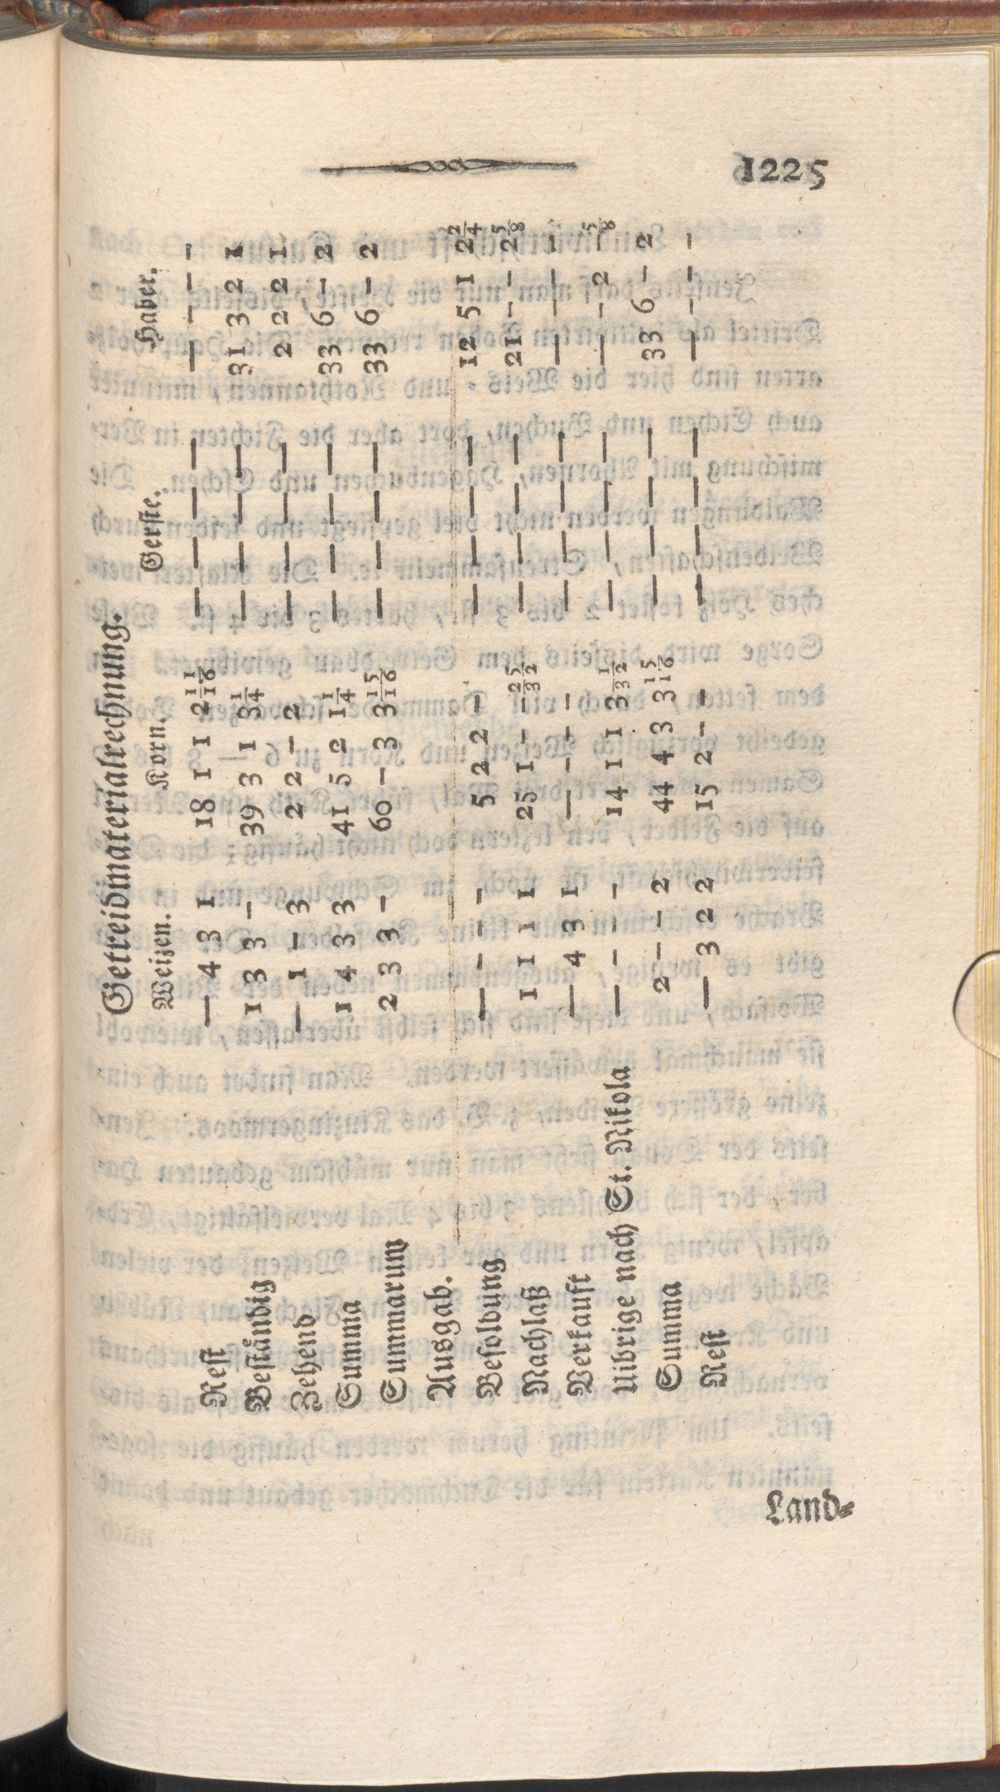 1225
Getreidmaterialrechnung.
Weizen. Korn. Gerste. Haber.
Rest — 4 3 1 18 1 1 2 11/16 — — — — — — — —
Beståndig 1 3 3 — 39 3 1 3 1/4 — — — — 31 3 2 1
Zehend — 1 — 3 2 2 — 2 — — — — 2 2 2 1
Summa 1 4 3 3 41 5 2 1 1/4 — — — — 33 6 — 2
Summarum 2 3 3 — 60 — 3 3 15/16 — — — — 33 6 — 2
Ausgab.
Besoldung — — — — 5 2 2 — — — — — 12 5 1 2 2/4
Nachlaß 1 1 1 1 25 1 — — 25/32 — — — — 21 — — 2 5/8
Verkauft — 4 3 1 — — — — — — — — — — — 1
Uibrige nach St. Nikola — — — — 14 1 1 3 1/32 — — — — — — 2 5/8
Summa 2 — — 2 44 4 3 3 15/16 — — — — 33 6 — 2
Rest — 3 2 2 15 2 — — — — — — — — — —
Land-